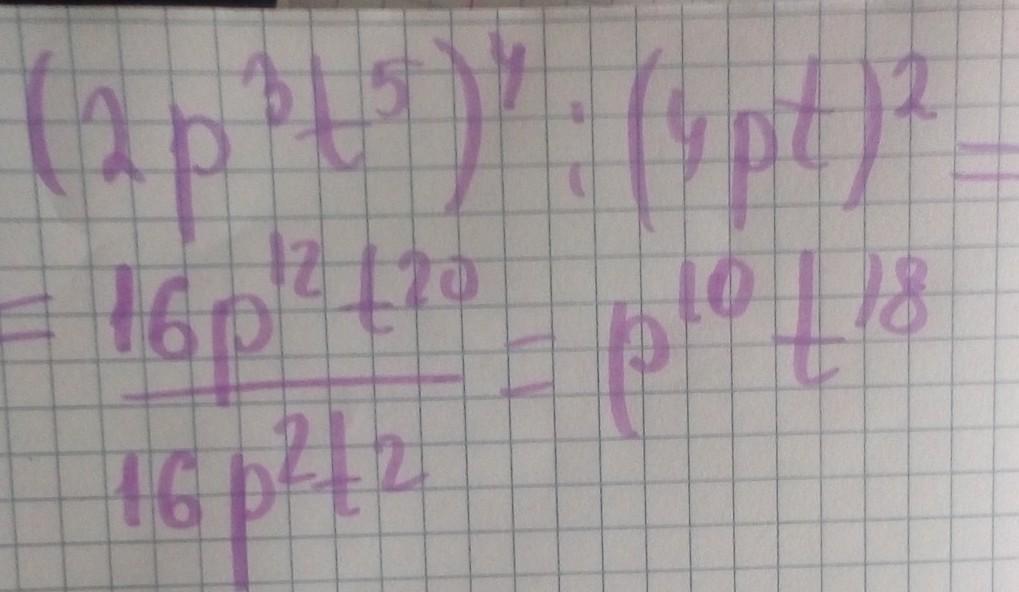 (2p³t⁵)⁴ : (4pt)² =
= 16p¹²t²⁰ / 16p²t² = p¹⁰t¹⁸